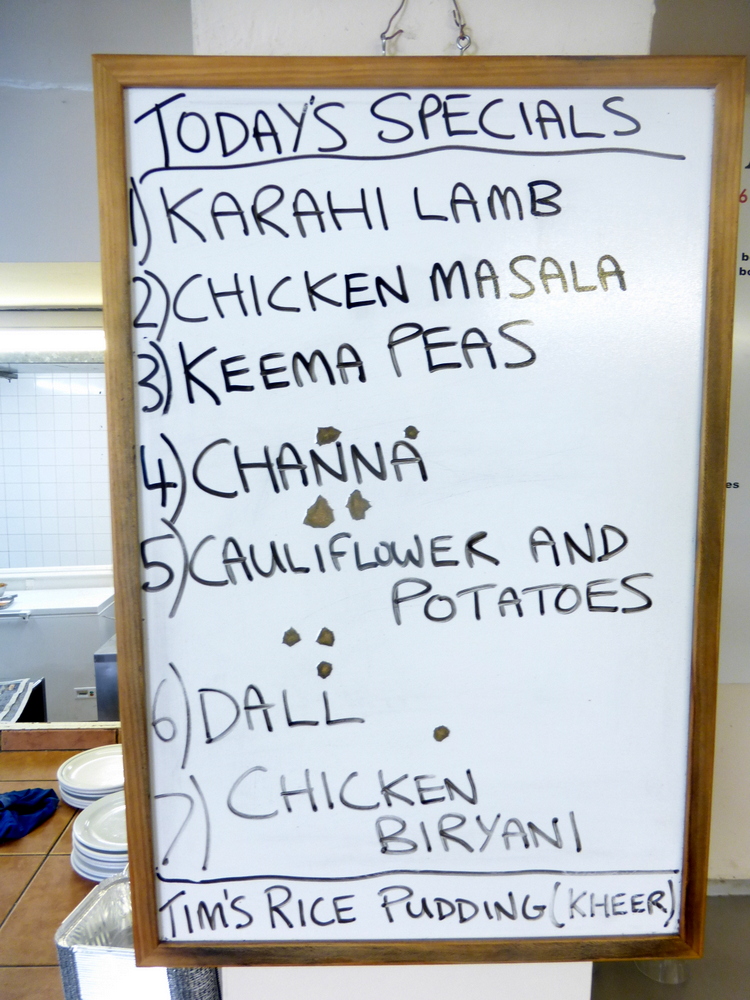 TODAY'S SPECIALS
1) KARAHI LAMB
2) CHICKEN MASALA
3) KEEMA PEAS
4) CHANNA
5) CAULIFLOWER AND
POTATOES
6) DALL
7) CHICKEN
BIRYANI
TIM'S RICE PUDDING (KHEER)